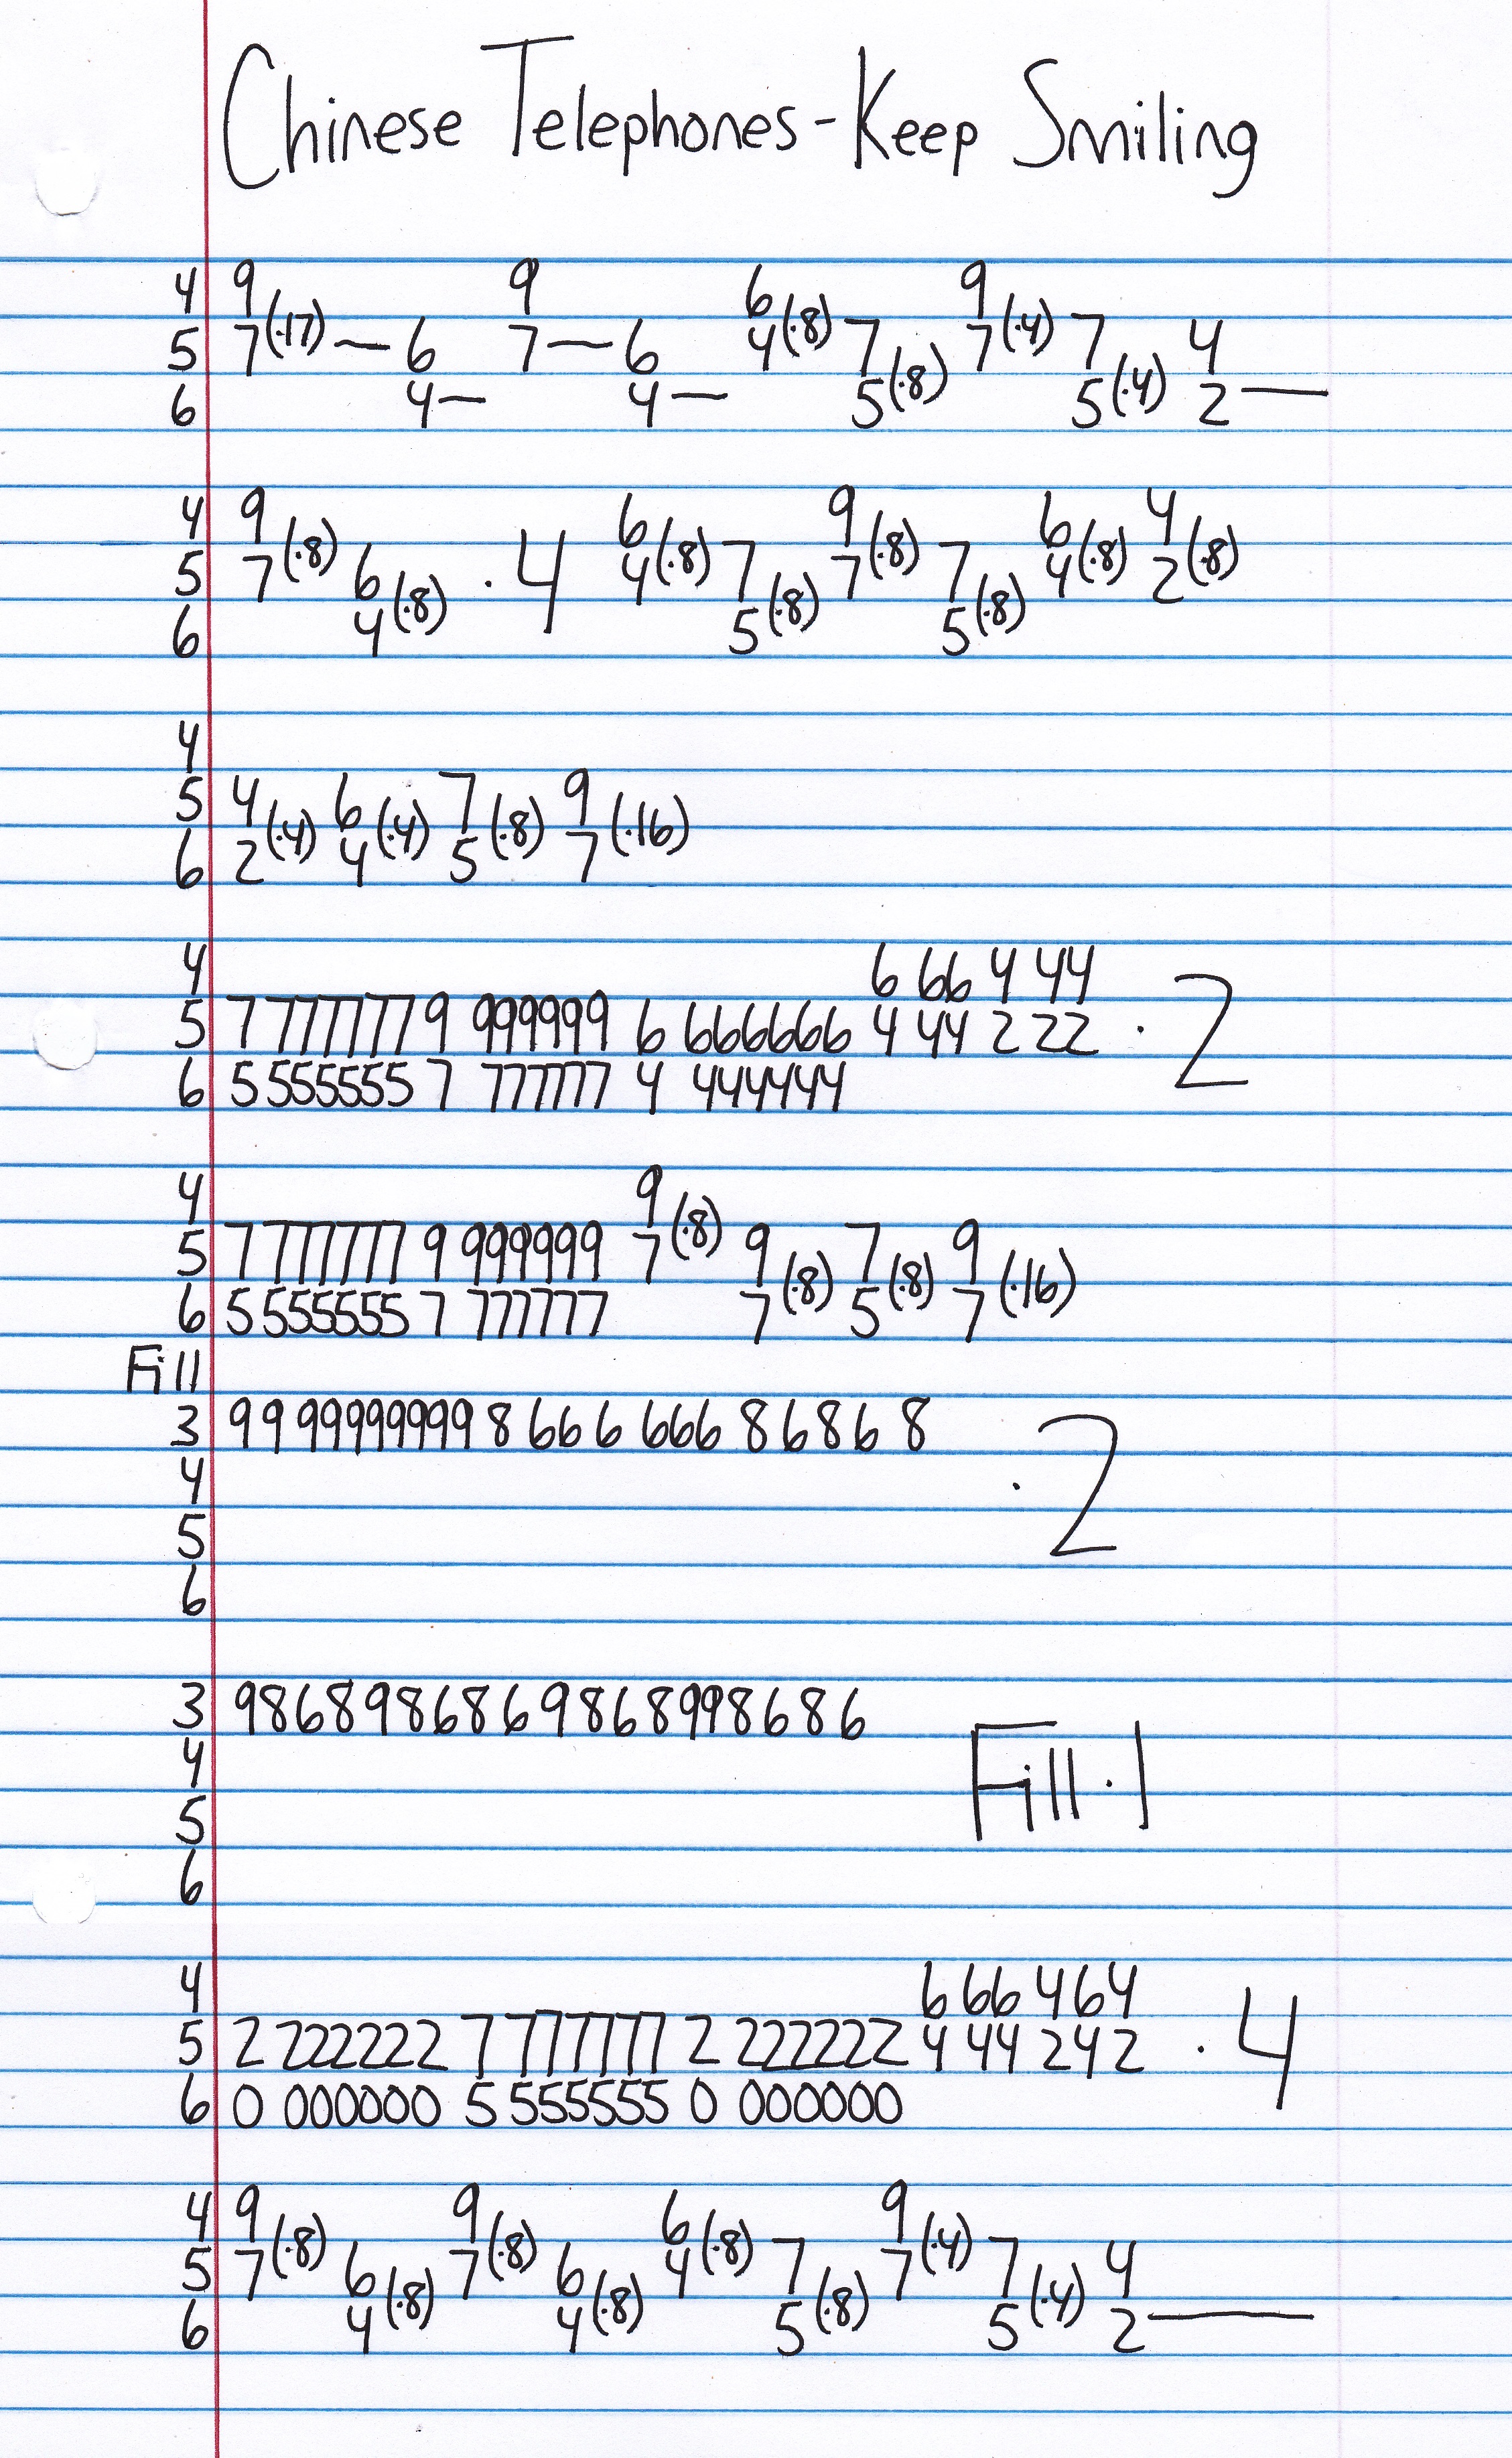 Chinese Telephones - Keep Smiling
4 9 9 6 9
5 7(·17) — 6 7 — 6 4(·8) 7 7(·4) 7 4
6 4 — 4 — 5(·8) 5(·4) 2 —
4 9 6 9 6 4
5 7(·8) 6 ·4 4(·8) 7 7(·8) 7 4(·8) 2(·8)
6 4(·8) 5(·8) 5(·8)
4
5 4 6 7 9
6 2(·4) 4(·4) 5(·8) 7(·16)
4 6 66 4 44
5 7 777777 9 999999 6 666666 4 44 2 22 ·2
6 5 555555 7 777777 4 444444
4 9
5 7 777777 9 999999 7(·8) 9 7 9
6 5 555555 7 777777 7(·8) 5(·8) 7(·16)
Fill
3 99 999999999 8 66 6 666 8 6 8 6 8 ·2
4
5
6
3 9868986869868998686
4 Fill ·1
5
6
4 6 66 4 6 4
5 2 222222 7 777777 2 222222 4 44 2 4 2 ·4
6 0 000000 5 555555 0 000000
4 9 9 6 9
5 7(·8) 6 7(·8) 6 4(·8) 7 7(·4) 7 4
6 4(·8) 4(·8) 5(·8) 5(·4) 2 —